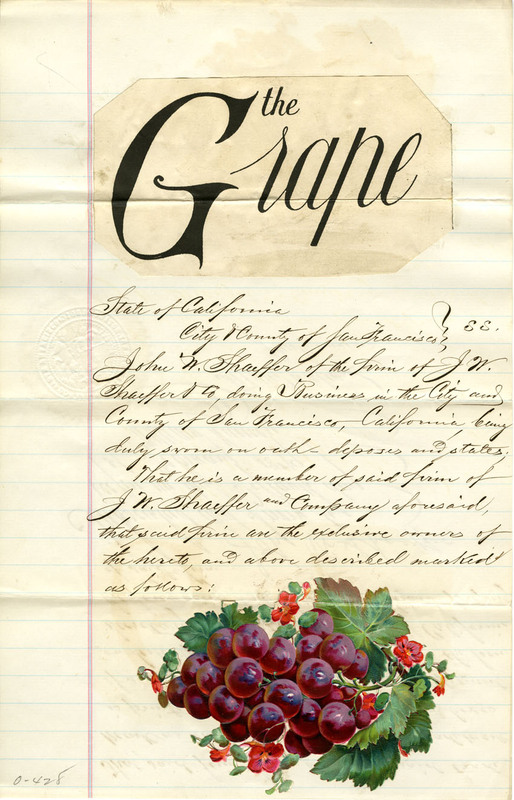 the
Grape
State of California
City & County of San Francisco } SS.
John W. Shaeffer of the firm of J. W.
Shaeffer & Co, doing Business in the City and
County of San Francisco, California, being
duly sworn on oath - deposes and states;
That he is a member of said firm of
J W. Shaeffer and Company aforesaid,
that said firm are the exclusive owners of
the hereto, and above described marked
as follows:
0-428